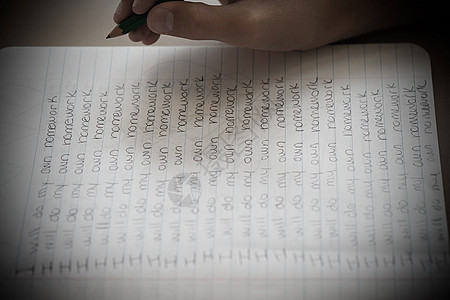 I will do my own homework
I will do my own homework
I will do my own homework
I will do my own homework
I will do my own homework
I will do my own homework
I will do my own homework
I will do my own homework
I will do my own homework
I will do my own homework
I will do my own homework
I will do my own homework
I will do my own homework
I will do my own homework
I will do my own homework
I will do my own homework
I will do my own homework
I will do my own homework
I will do my own homework
I will do my own homework
I will do my own homework
I will do my own homework
I will do my own homework
I will do my own homework